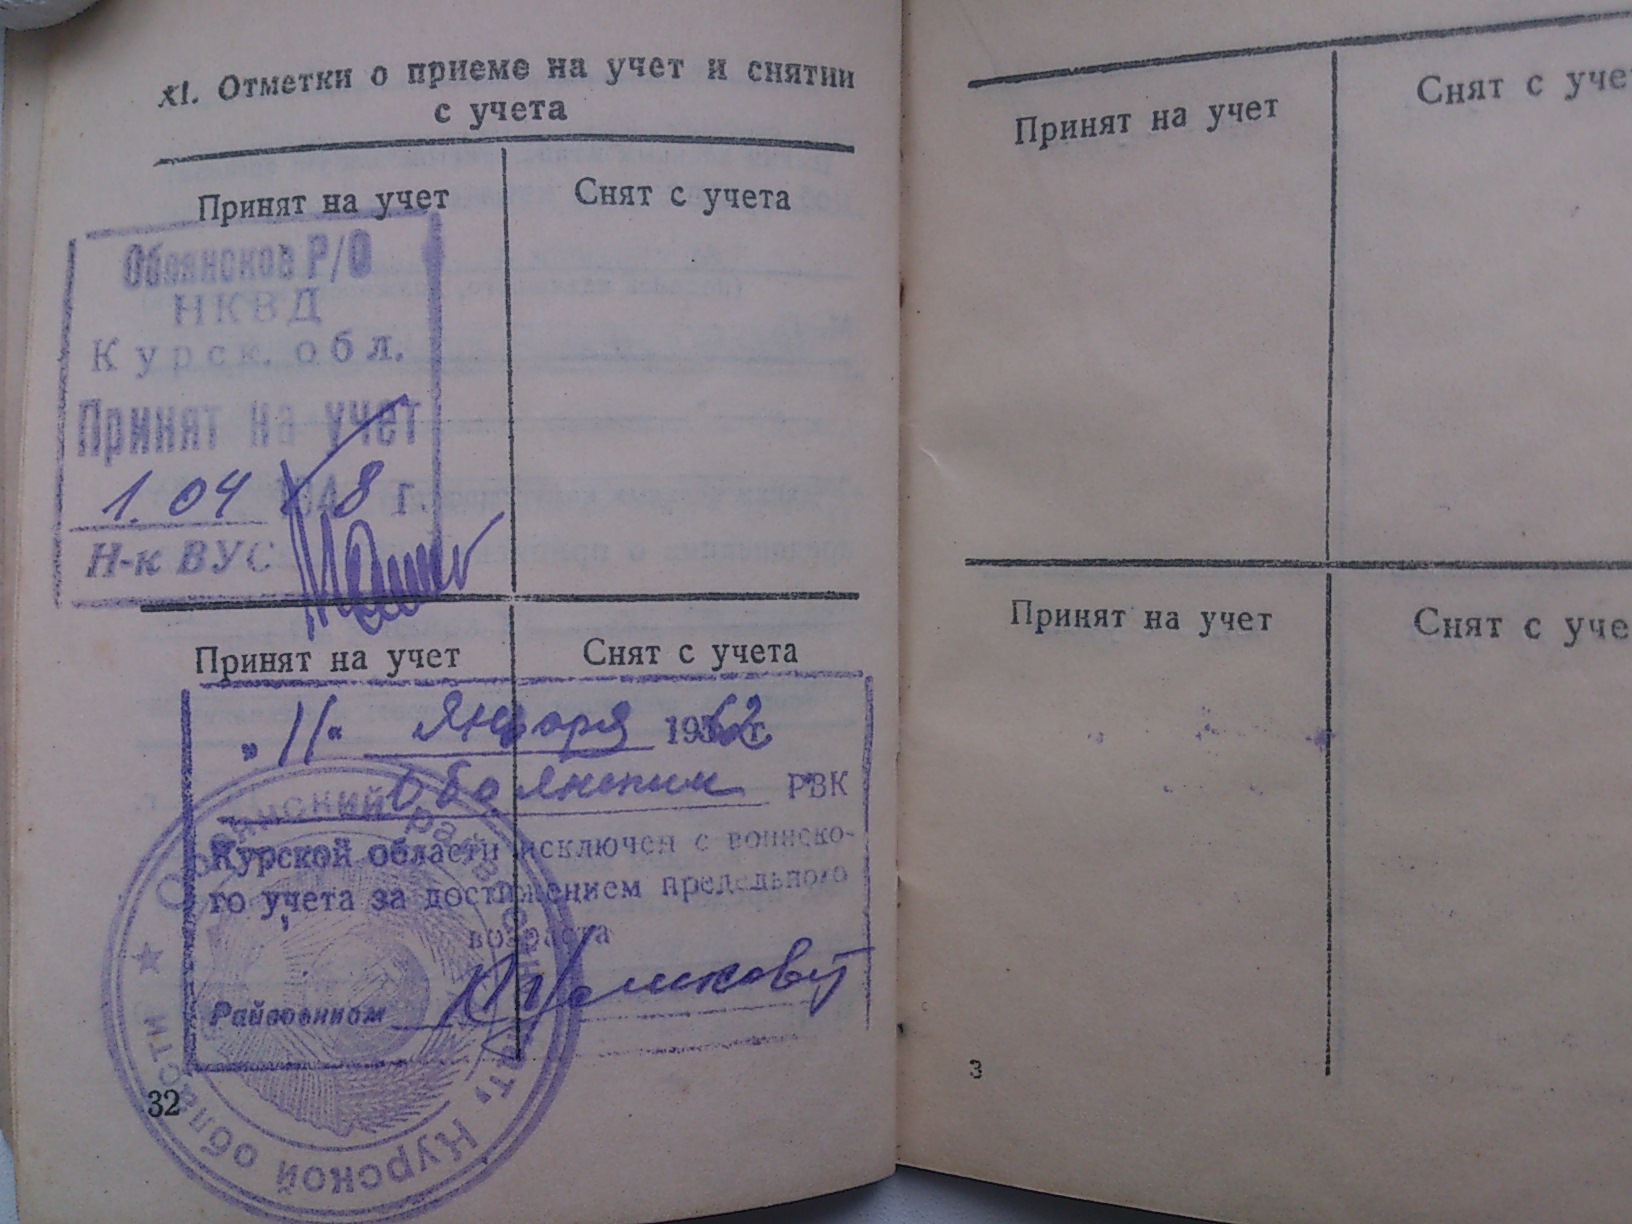 XI. Отметки о приеме на учет и снятии
с учета
Принят на учет
Снят с учета
Обоянское Р/О
НКВД
Курск. обл.
Принят на учет
1.04 1948 г.
Н-к ВУС
Принят на учет
Снят с учета
„11“ января 1962 г.
Обоянским РВК
Курской области исключен с воинско-
го учета за достижением предельного
возраста
Райвоенком
Обоянский райвоенкомат, Курской области
32
Принят на учет
Снят с уче
Принят на учет
Снят с уче
3